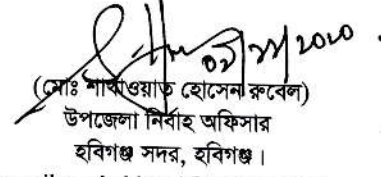 (মোঃ শাখাওয়াত হোসেন রুবেল)
উপজেলা নির্বাহ অফিসার
হবিগঞ্জ সদর, হবিগঞ্জ।